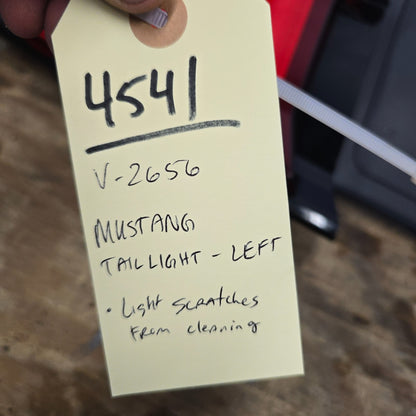 4541
V-2656
MUSTANG
TAILLIGHT - LEFT
• Light SCRATCHES
FROM cleaning